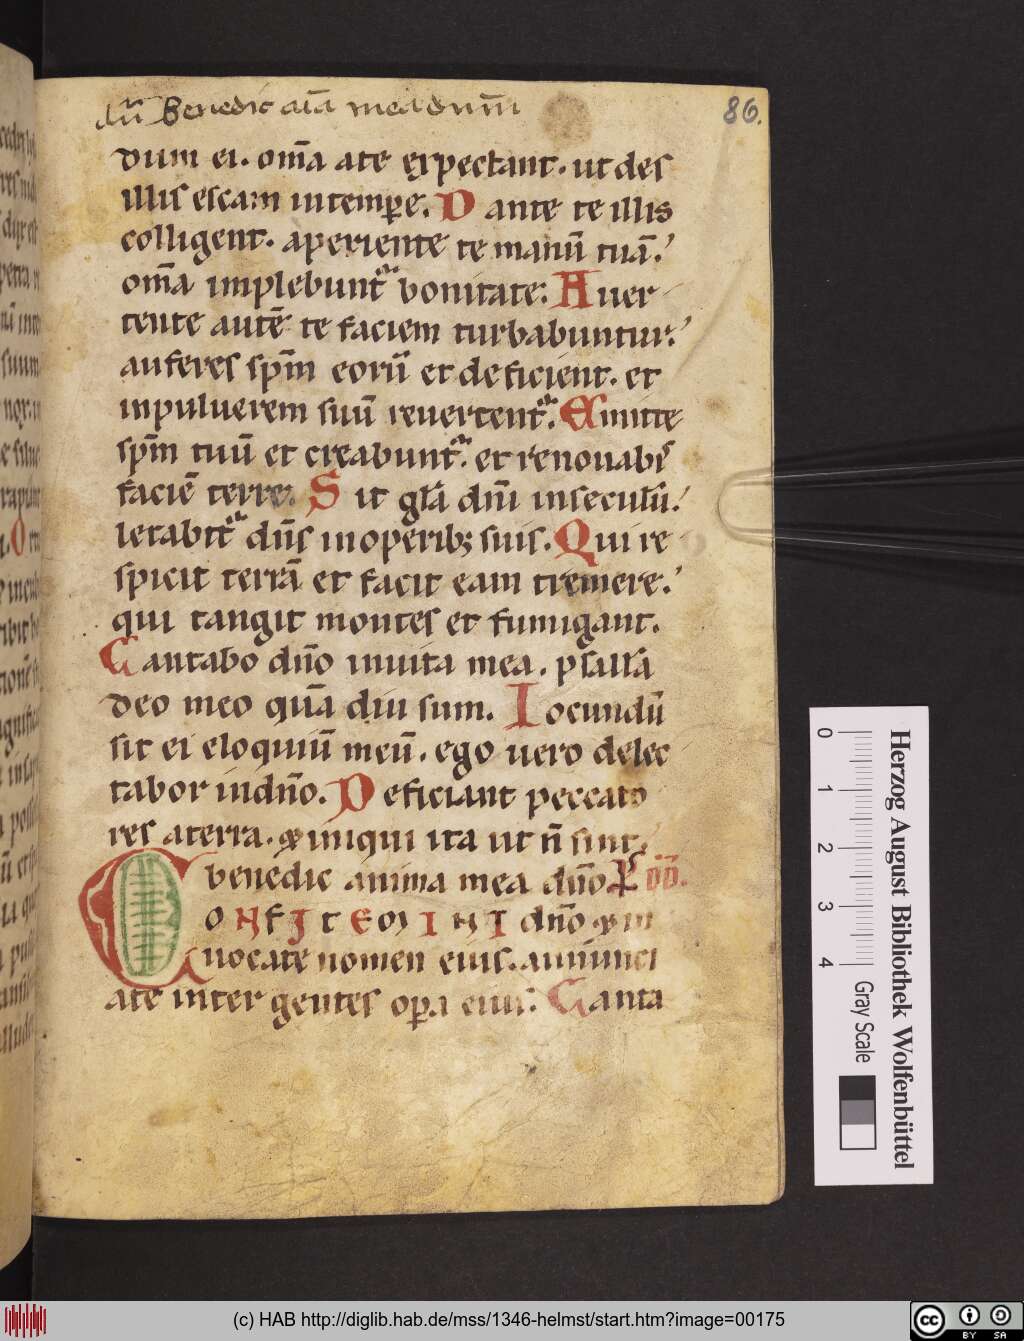 Benedic aīa mea dnm̄ 86.
dum ei. om̄a a te expectant. ut des
illis escam in temp̱e. D ante te illis
colligent. aperiente te manū tuā.
om̄a implebunt᷑ bonitate. Auer
tente autē te faciem turbabuntur.
auferes sp̄m eorū et deficient. et
inpuluerem suū reuertent᷑. Emitte
sp̄m tuū et creabunt᷑. et renouabis
faciē terre. Sit gl̄a dn̄i in seculū.
letabit᷑ dn̄s in operib; suis. Qui re
spicit terrā et facit eam tremere.
qui tangit montes et fumigant.
Cantabo dn̄o in uita mea. psallā
deo meo quā diu sum. Iocundū
sit ei eloquiū meū. ego uero delec
tabor in dn̄o. Deficiant peccato
res a terra. & iniqui ita ut n̄ sint.
benedic anima mea dn̄o
CONFITEMINI dn̄o & in
uocate nomen eius. annunci
ate inter gentes op̱a eius. Canta
0 1 2 3 4 Gray Scale
Herzog August Bibliothek Wolfenbüttel
(c) HAB http://diglib.hab.de/mss/1346-helmst/start.htm?image=00175
cc BY SA